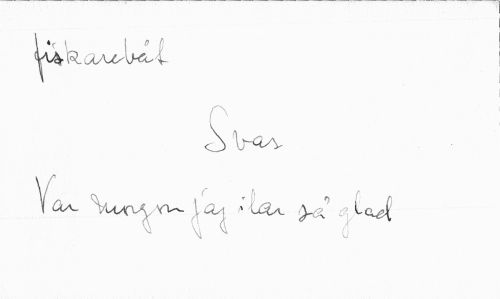 fiskarebåt
Svar
Var morgon jag ilar så glad